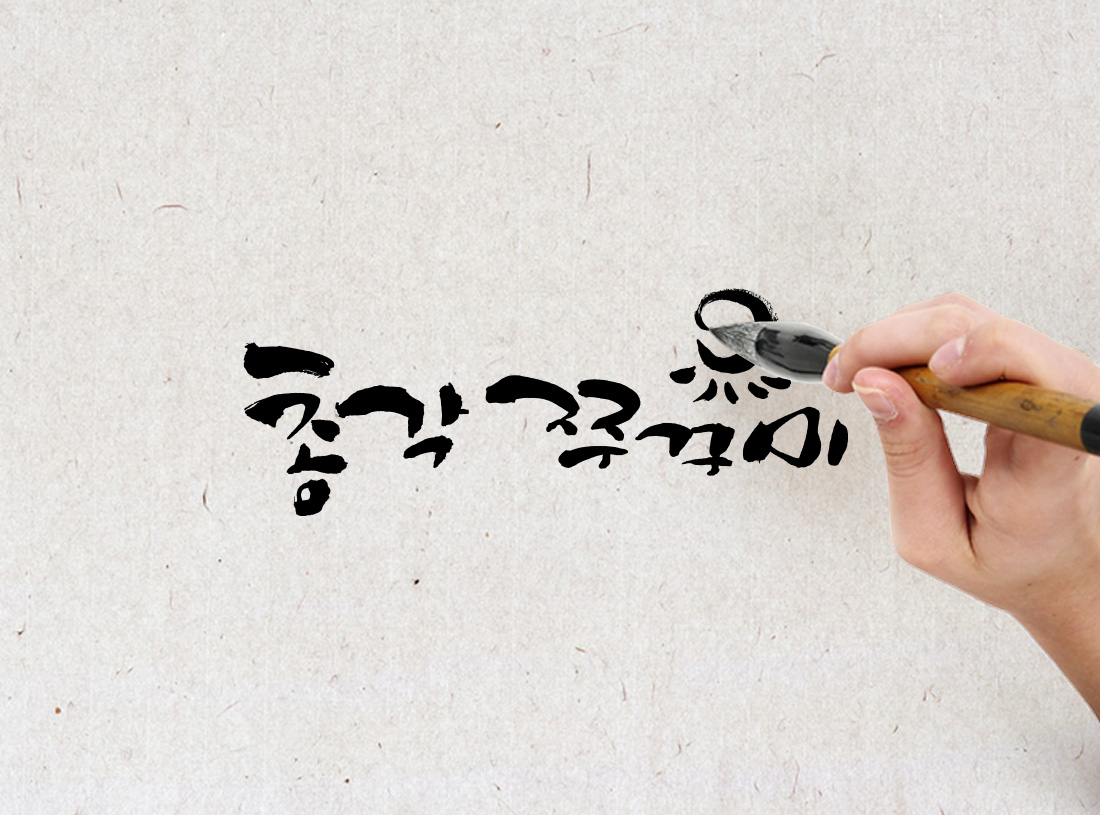 총각 쭈꾸미